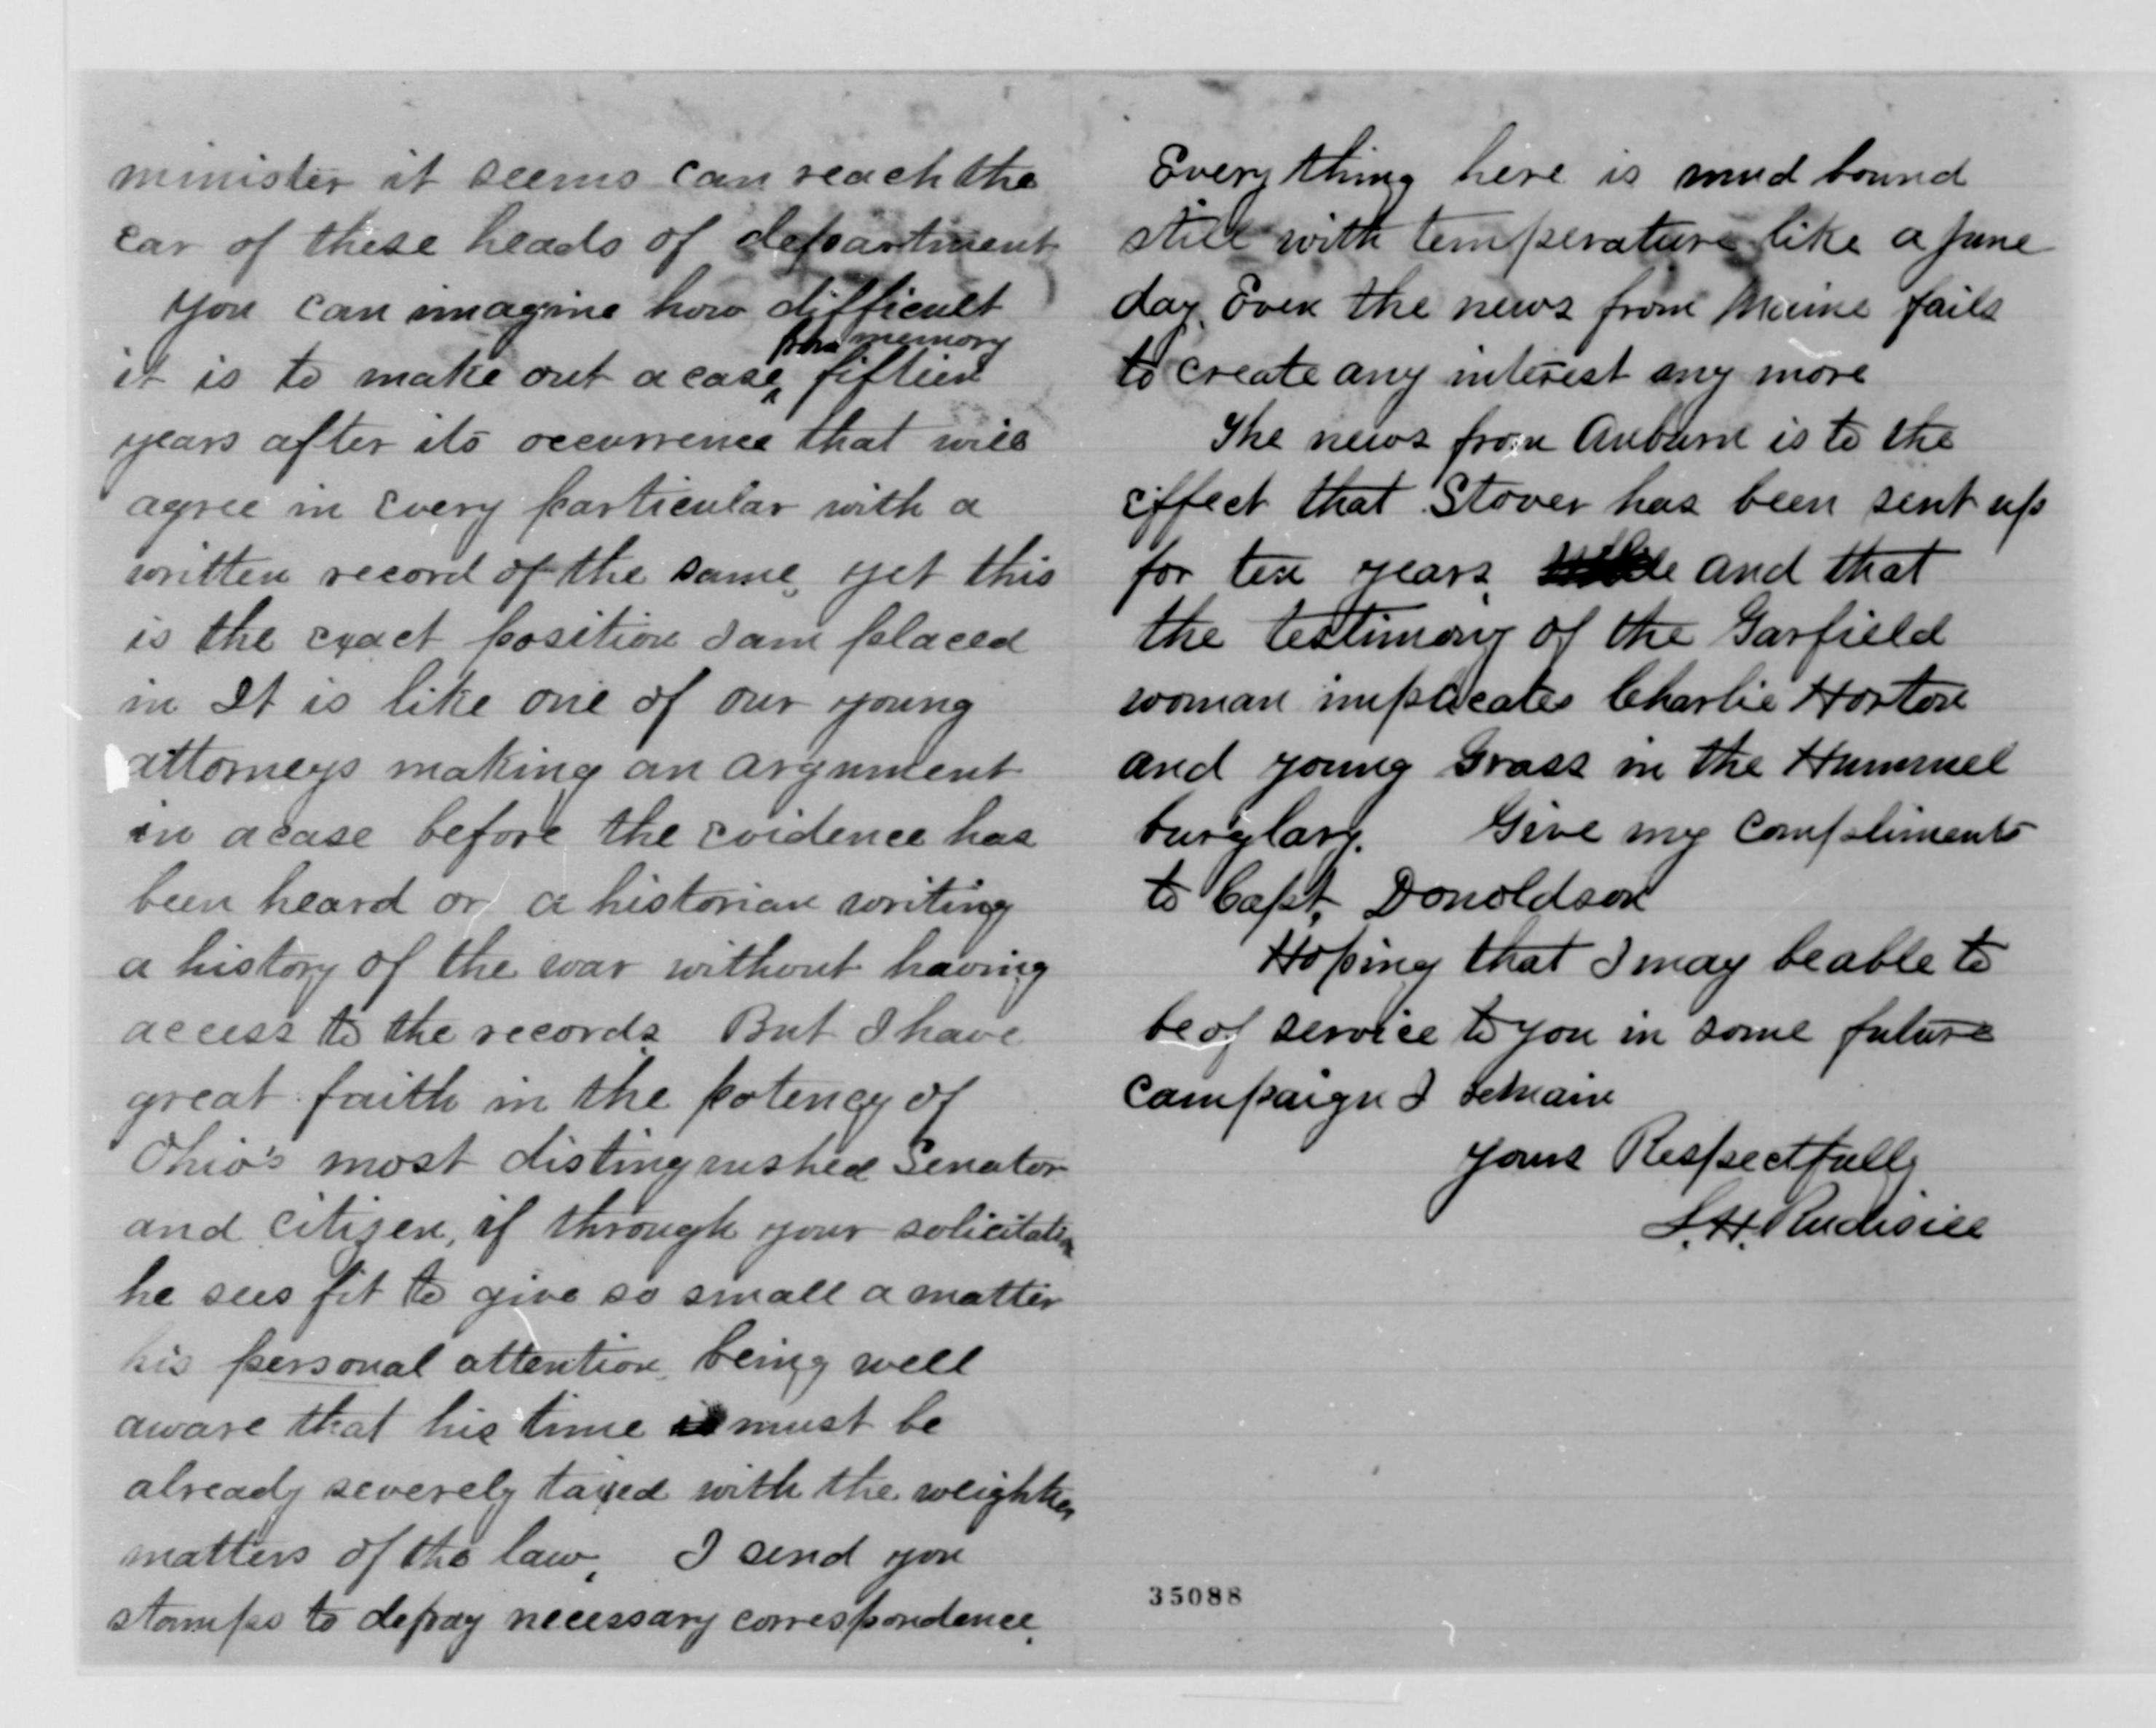 minister it seems can reach the
ear of these heads of department
You can imagine how difficult
from memory
it is to make out a case, fifteen
years after its occurrence that will
agree in every particular with a
written record of the same, yet this
is the exact position I am placed
in It is like one of our young
attorneys making an argument
in a case before the evidence has
been heard or a historian writing
a history of the war without having
access to the records. But I have
great faith in the potency of
Ohio's most distinguished Senator
and citizen, if through your solicitation
he sees fit to give so small a matter
his personal attention, being well
aware that his time must be
already severely taxed with the weightier
matters of the law. I send you
stamps to defray necessary correspondence.
Everything here is mud bound
still with temperature like a June
day. Even the news from Maine fails
to create any interest any more
The news from Auburn is to the
effect that Stover has been sent up
for ten years, and that
the testimony of the Garfield
woman implicates Charlie Horton
and young Grass in the Hummel
burglary. Give my compliments
to Capt. Donoldson
Hoping that I may be able to
be of service to you in some future
campaign I remain
Yours Respectfully
S. H. Rudisill
35088